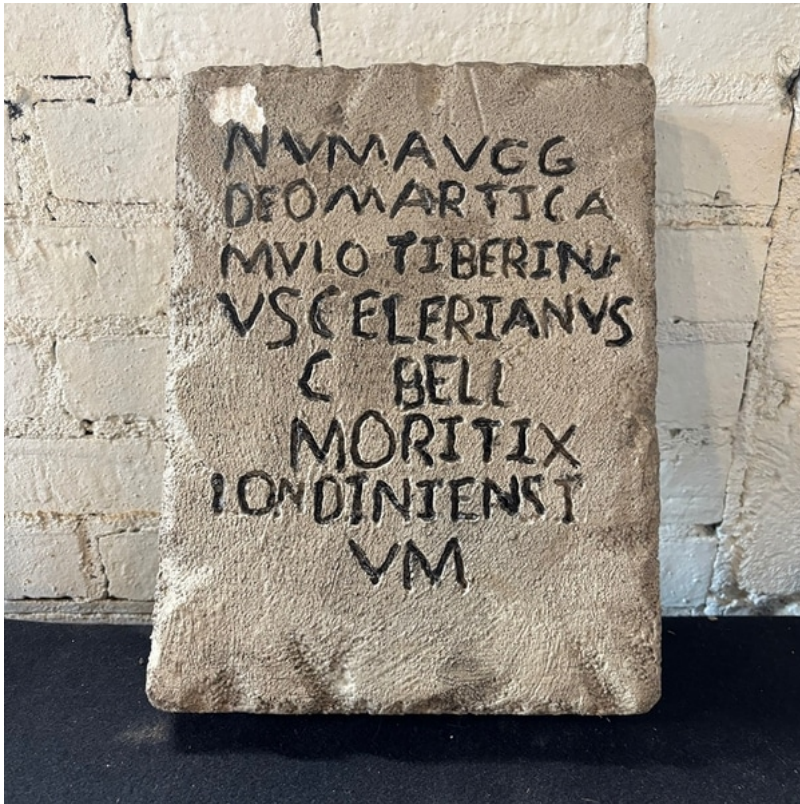 NVMAVGG
DEOMARTICA
MVLO TIBERINI
VSCELERIANVS
C BELL
MORITIX
LONDINIENSI
VM